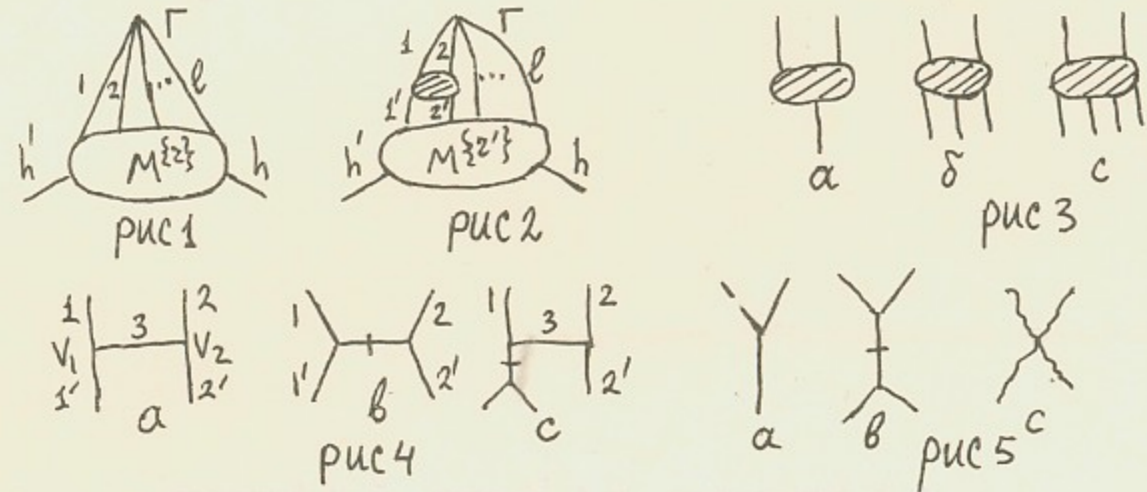 Г
1 2 ... l
h' M{2} h
рис 1
Г
1 2 ... l
1' 2'
h' M{2'} h
рис 2
а б с
рис 3
1 2
3
V₁ V₂
1' 2'
а
1 2
1' 2'
в
1 2
3
2'
с
рис 4
а в с
рис 5